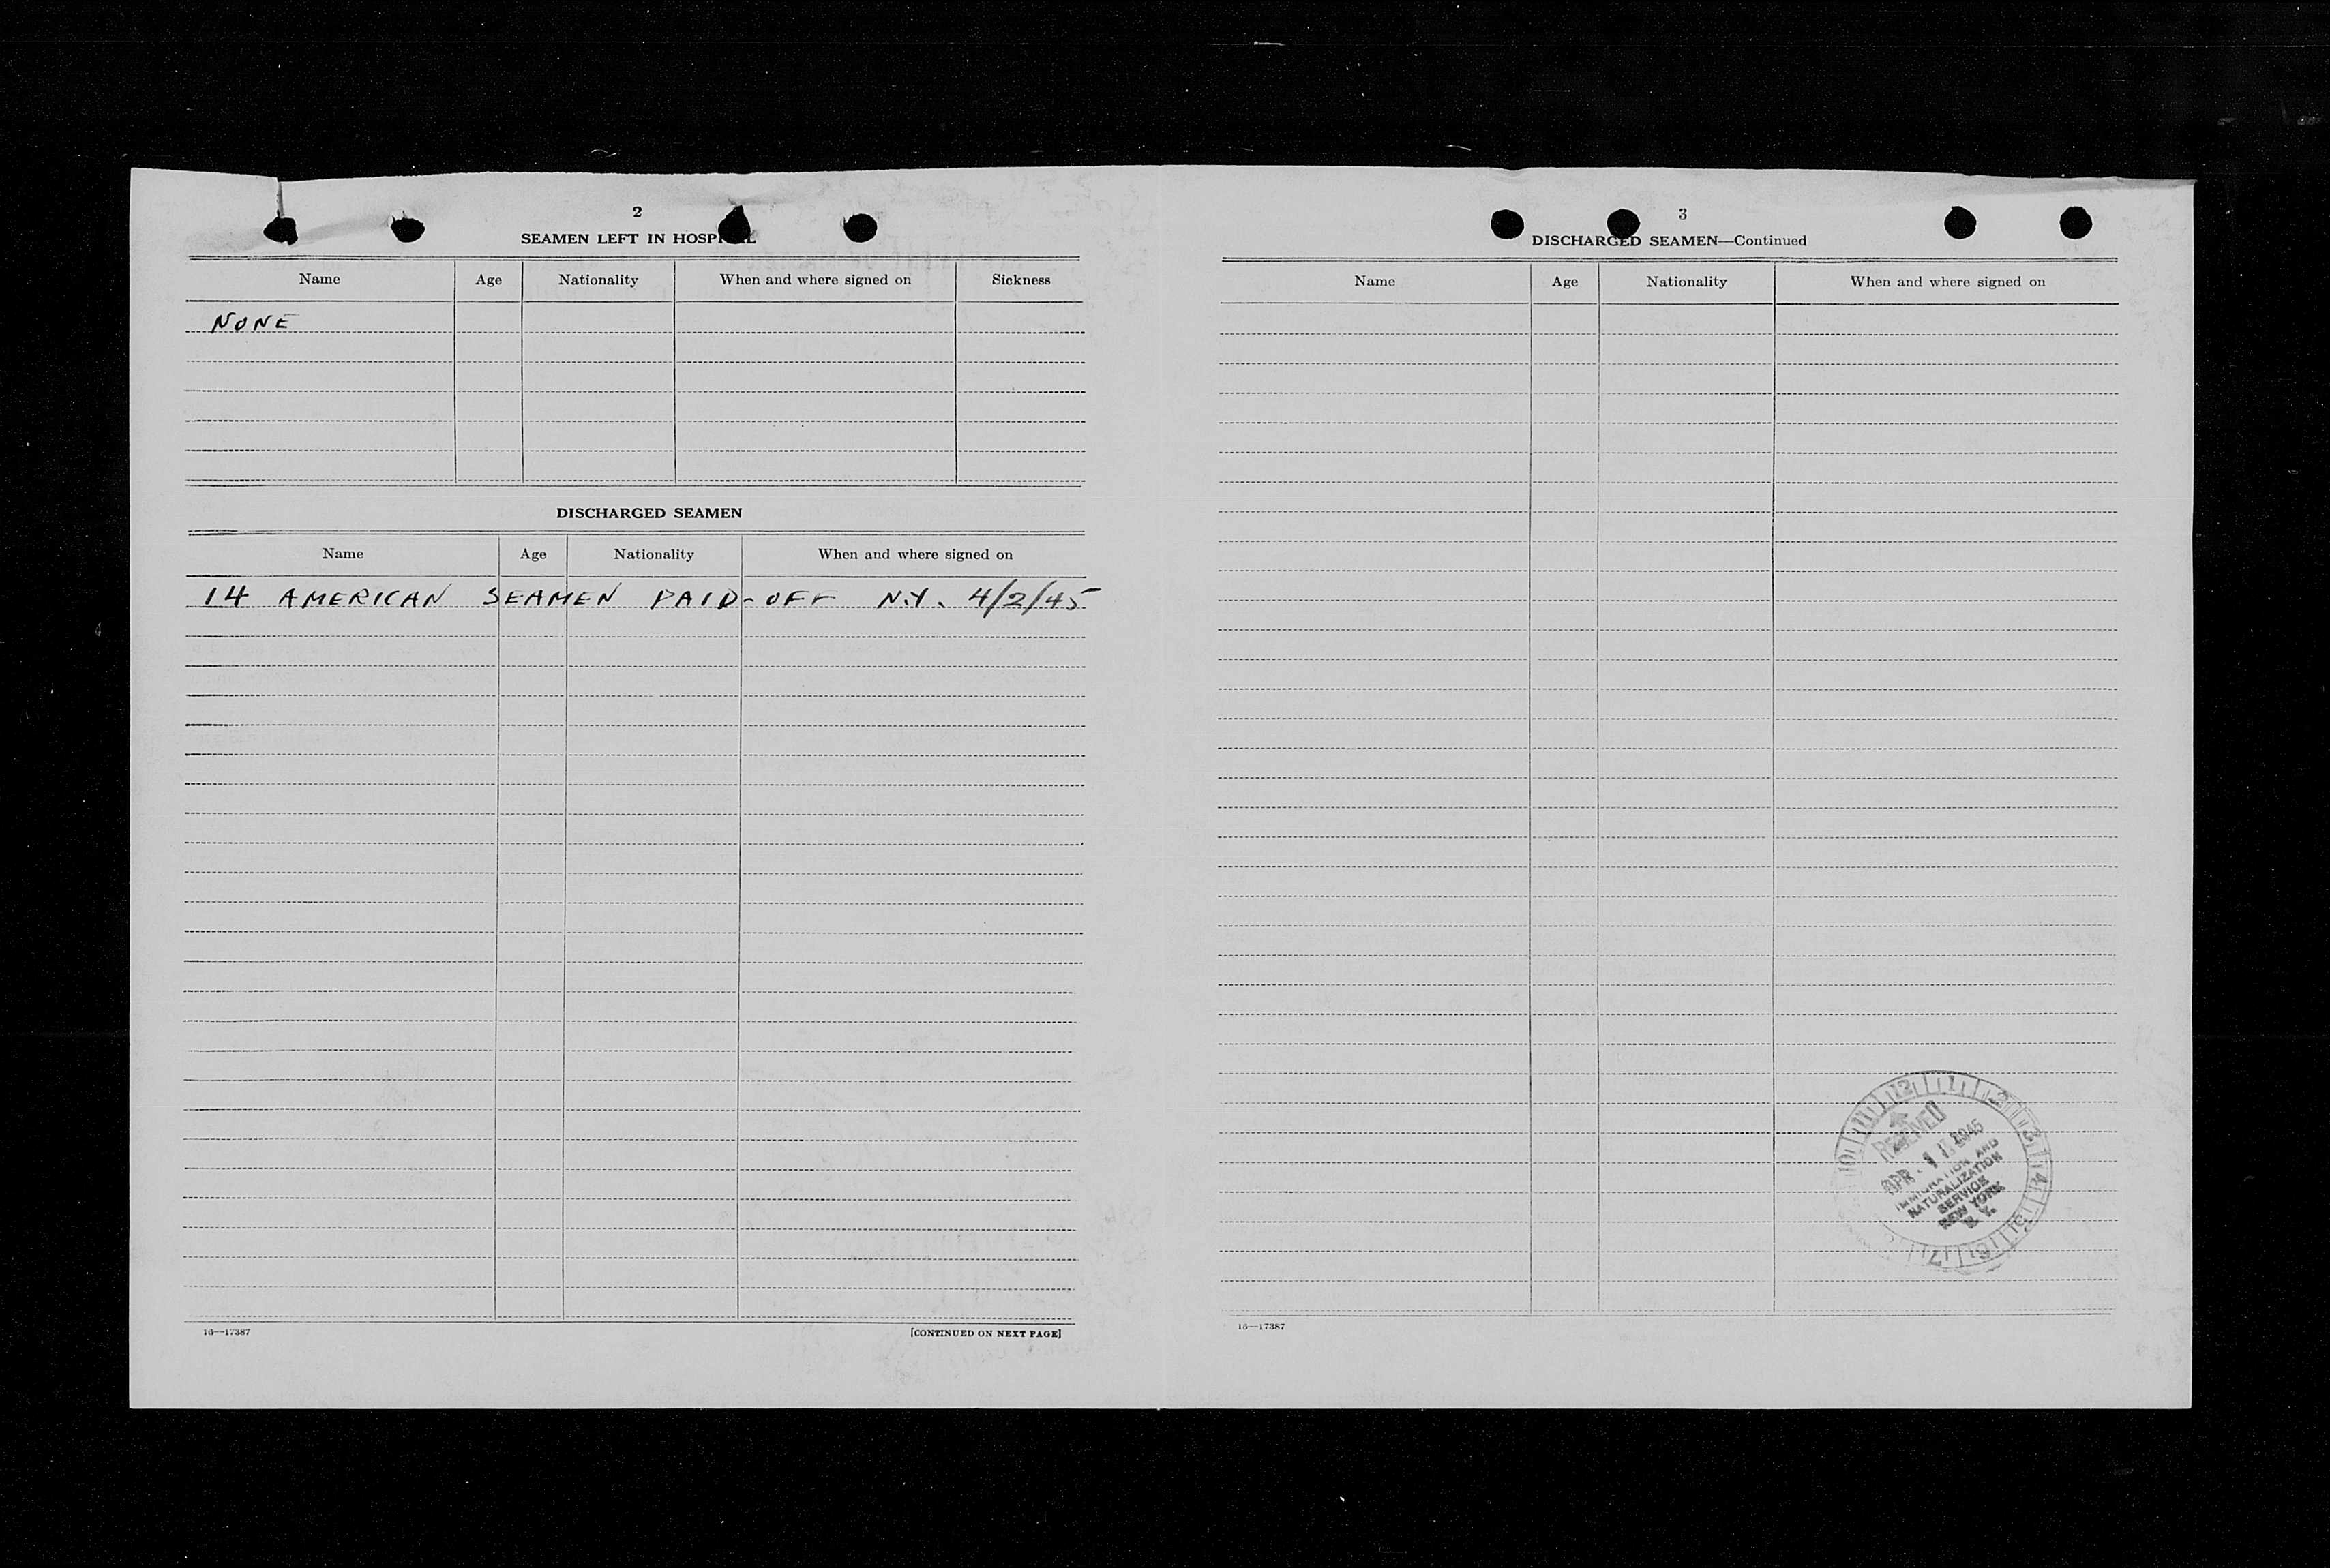 2
SEAMEN LEFT IN HOSPITAL
Name Age Nationality When and where signed on Sickness
NONE
DISCHARGED SEAMEN
Name Age Nationality When and where signed on
14 AMERICAN SEAMEN PAID-OFF N.Y. 4/2/45
16—17387 [CONTINUED ON NEXT PAGE]
3
DISCHARGED SEAMEN—Continued
Name Age Nationality When and where signed on
12 1 2 3 4 5 6 7 10 11
RECEIVED
APR 1945
IMMIGRATION AND
NATURALIZATION
SERVICE
NEW YORK
N. Y.
16—17387